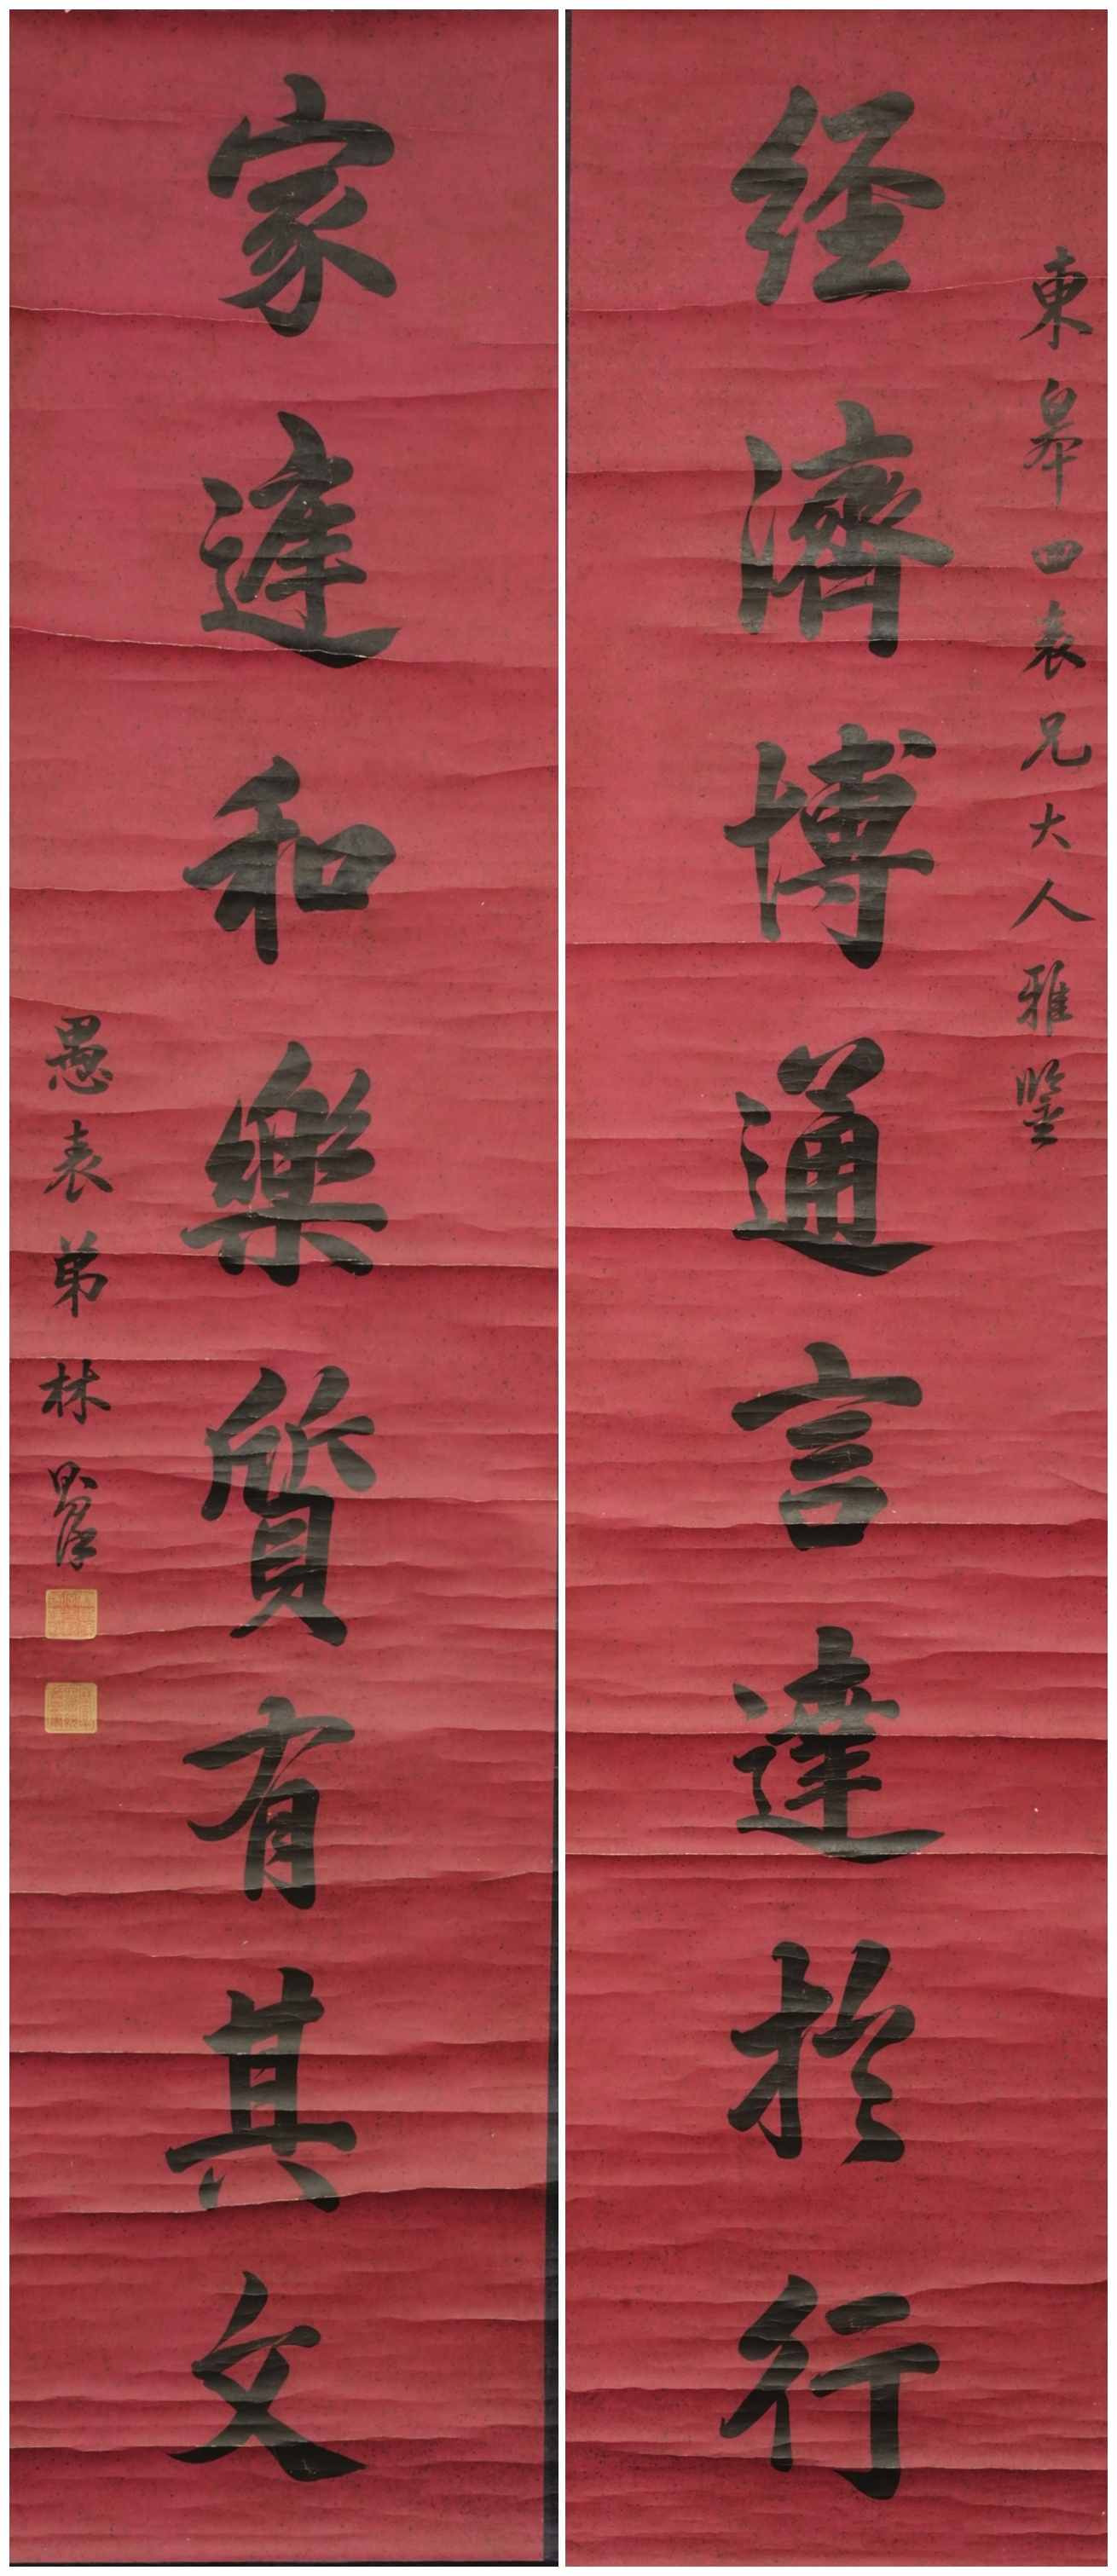 東皋四表兄大人雅鑒
经濟博通言達於行
家迋和樂質有其文
愚表弟林